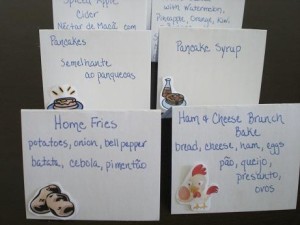 Spiced Apple
Cider
Néctar de Maçã com
with Watermelon,
Pineapple, Orange, Kiwi
Pancakes
Semelhante
ao panquecas
Pancake Syrup
Home Fries
potatoes, onion, bell pepper
batata, cebola, pimentão
Ham & Cheese Brunch
Bake
bread, cheese, ham, eggs
pão, queijo,
presunto,
ovos